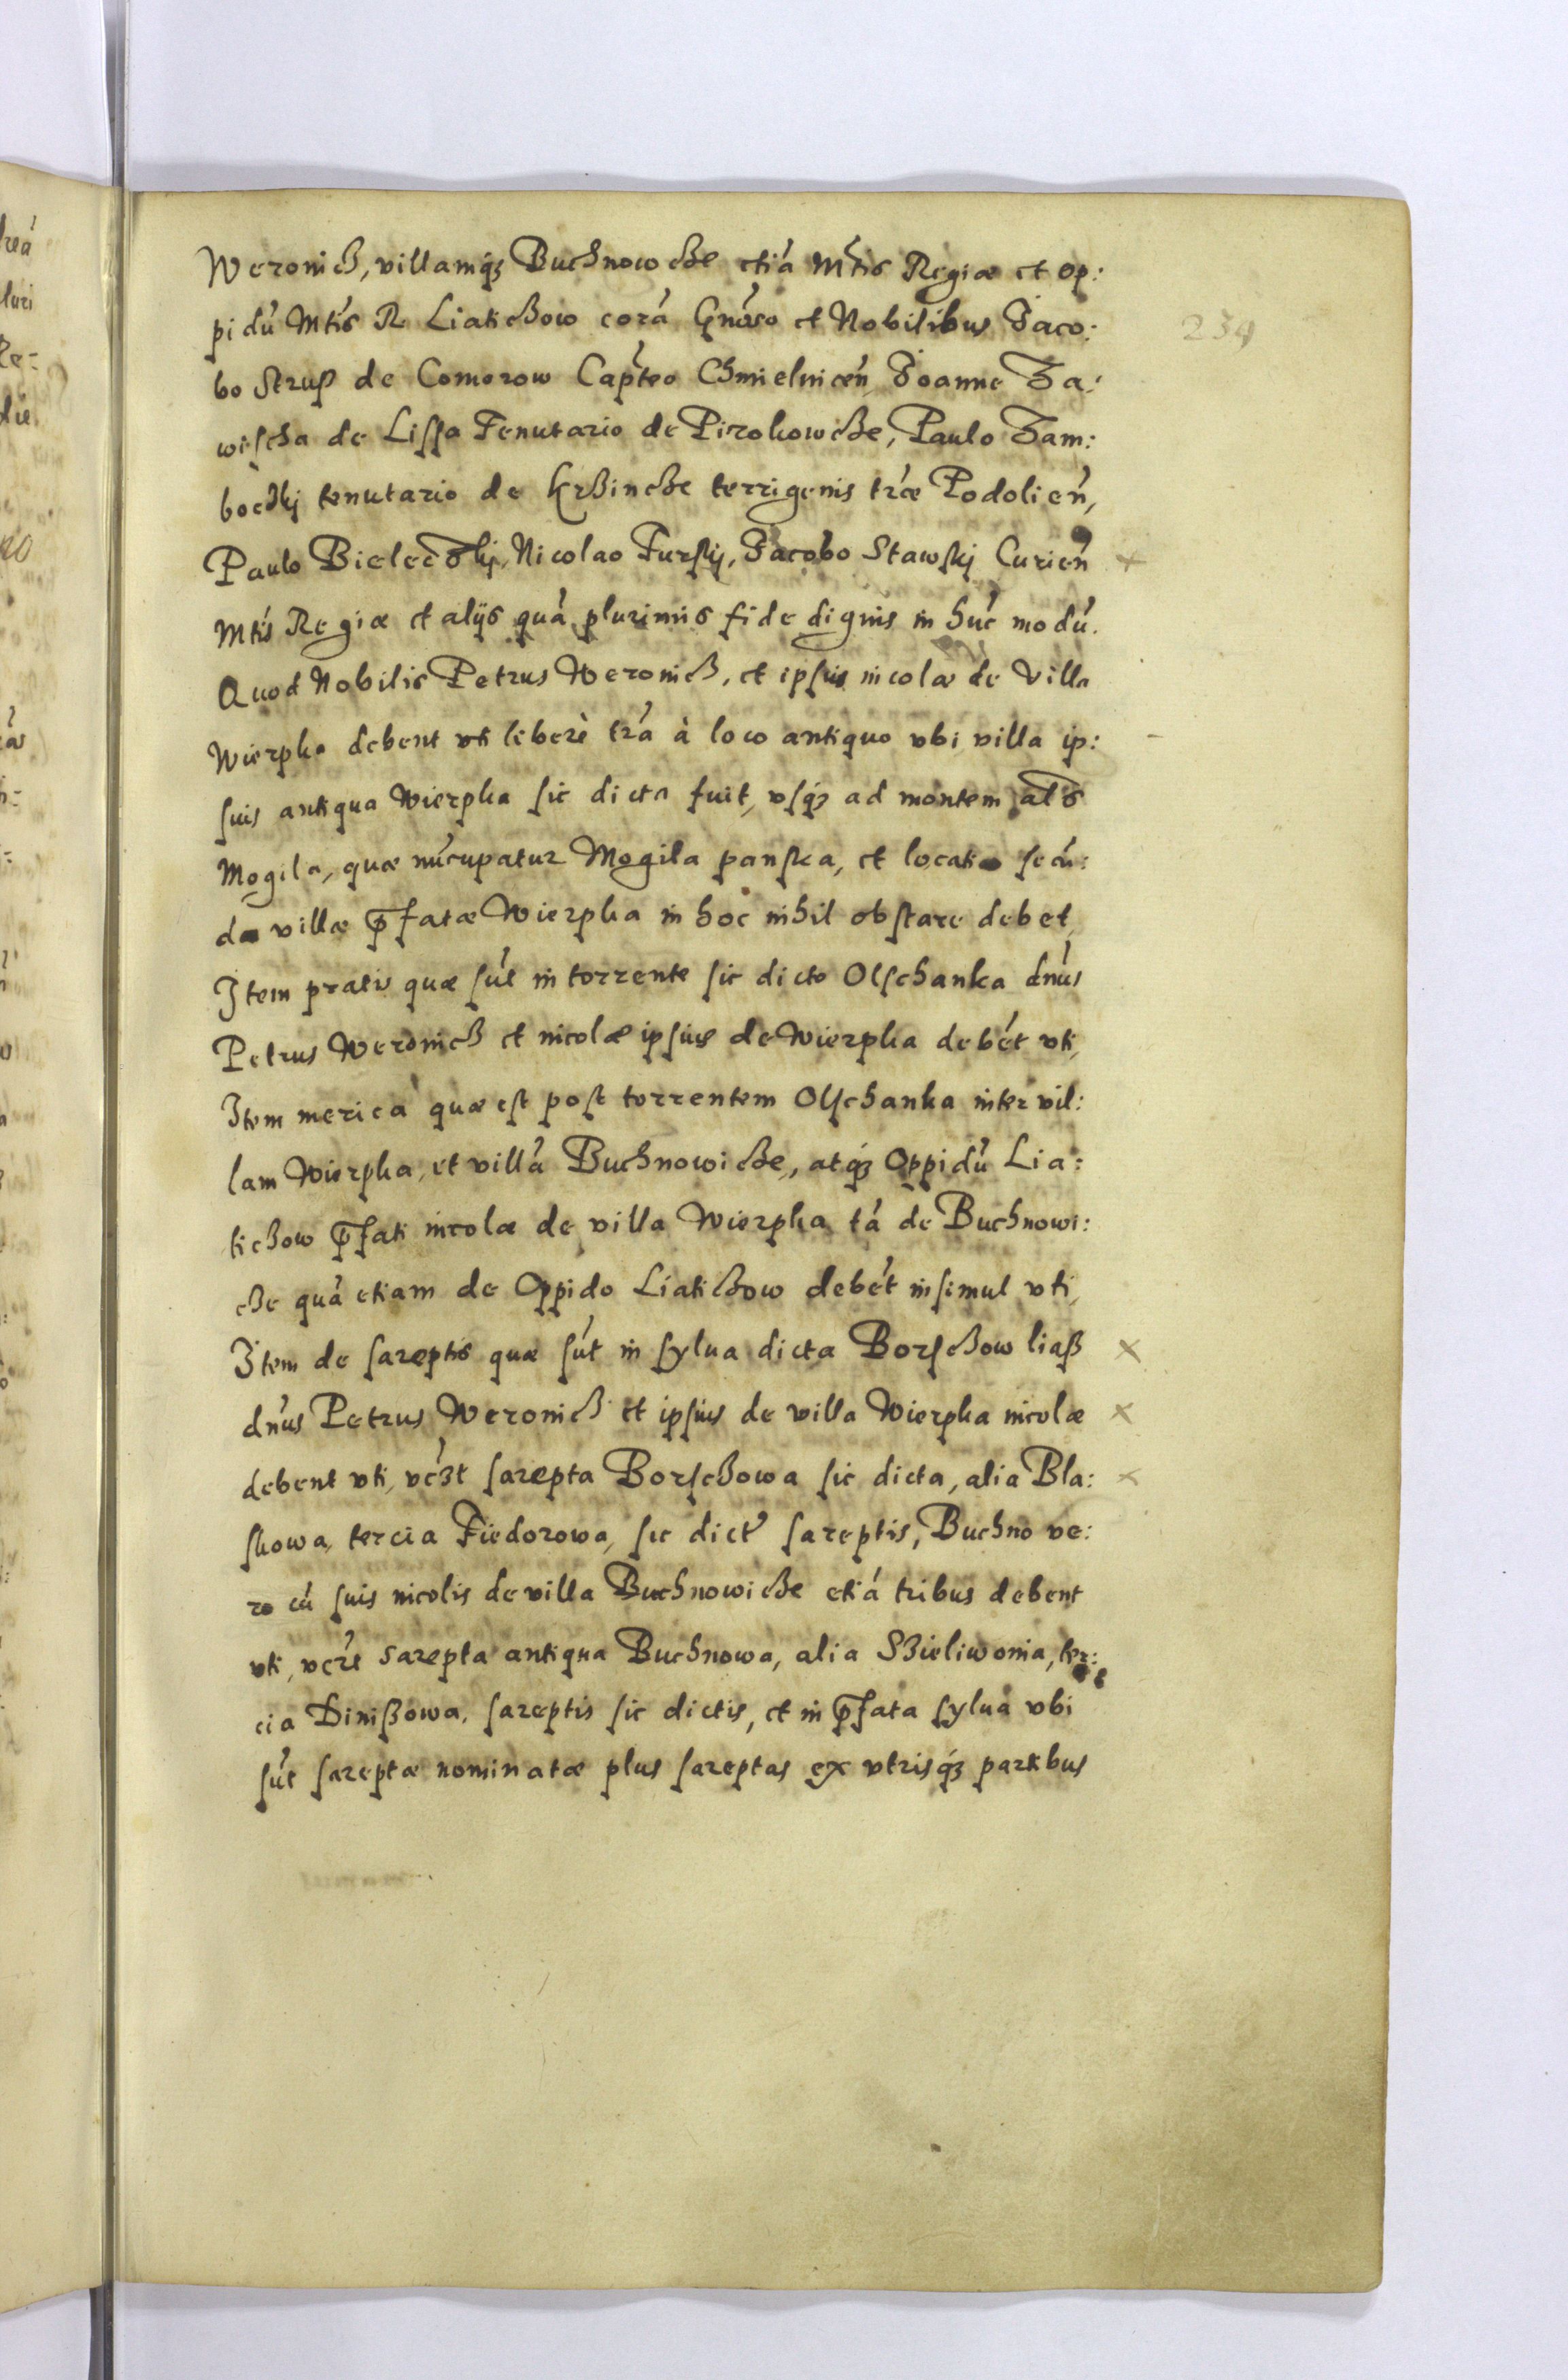 Weronicz, villamq́3 Buchnowcze etiá Mtis Regiæ et op:
pidú Mtis R Liaticzow corá Gnóso et Nobilibus Jaco:
bo Strusz de Comorow Capteo Chmielnicen̄ Joanne Za:
wischa de Lissa Tenutario de Pirokowcze, Paulo Zam:
boczkj tenutario de Krzincze terrigenis tr̄æ Podolien̄,
Paulo Bieleczkj, Nicolao Turskij, Jacobo Stawskj Curien̄
Mtis Regiæ et alijs quá plurimis fide dignis in húc modú.
Quod Nobilis Petrus Weronicz, et ipsius incolæ de Villa
Wierpka debent vti liberè tr̄a à loco antiquo vbi villa ip:
suis antiqua Wierpka sic dicta fuit, vsq́3 ad montem als
Mogila, quæ núcupatur Mogila panska, et locatio secú:
da villæ p̄fatæ Wierpka in hoc nihil obstare debet,
Item pratis quæ sút in torrente sic dicto Olschanka dnús
Petrus Weronicz et incolæ ipsius de Wierpka debét vti,
Item merica quæ est post torrentem Olschanka inter vil:
lam Wierpka, et villá Buchnowicze, atq́3 Oppidú Lia:
ticzow p̄fati incolæ de villa Wierpka tá de Buchnowi:
cze quá etiam de Oppido Liaticzow debét insimul vti,
Item de sareptis quæ sút in sylua dicta Borsczow liasz
dnús Petrus Weronicz et ipsius de villa Wierpka incolæ
debent vti, vczt sarepta Borsczowa sic dicta, alia Bla:
skowa, tercia Fiedorowa, sic dict' sareptis, Buchno ve:
ro cú suis incolis de villa Buchnowicze etiá tribus debent
vti, vcr̄t sarepta antiqua Buchnowa, alia Szieliwonia, ter:
cia Diniszowa, sareptis sic dictis, et in p̄fata sylua vbi
sút sareptæ nominatæ plus sareptas ex vtrisq́3 partibus
234